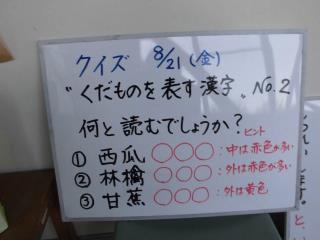 クイズ 8/21(金)
"くだものを表す漢字" No.2
何と読むでしょうか?ヒント
① 西瓜 ○○○:中は赤色が多い
② 林檎 ○○○:外は赤色が多い
③ 甘蕉 ○○○:外は黄色